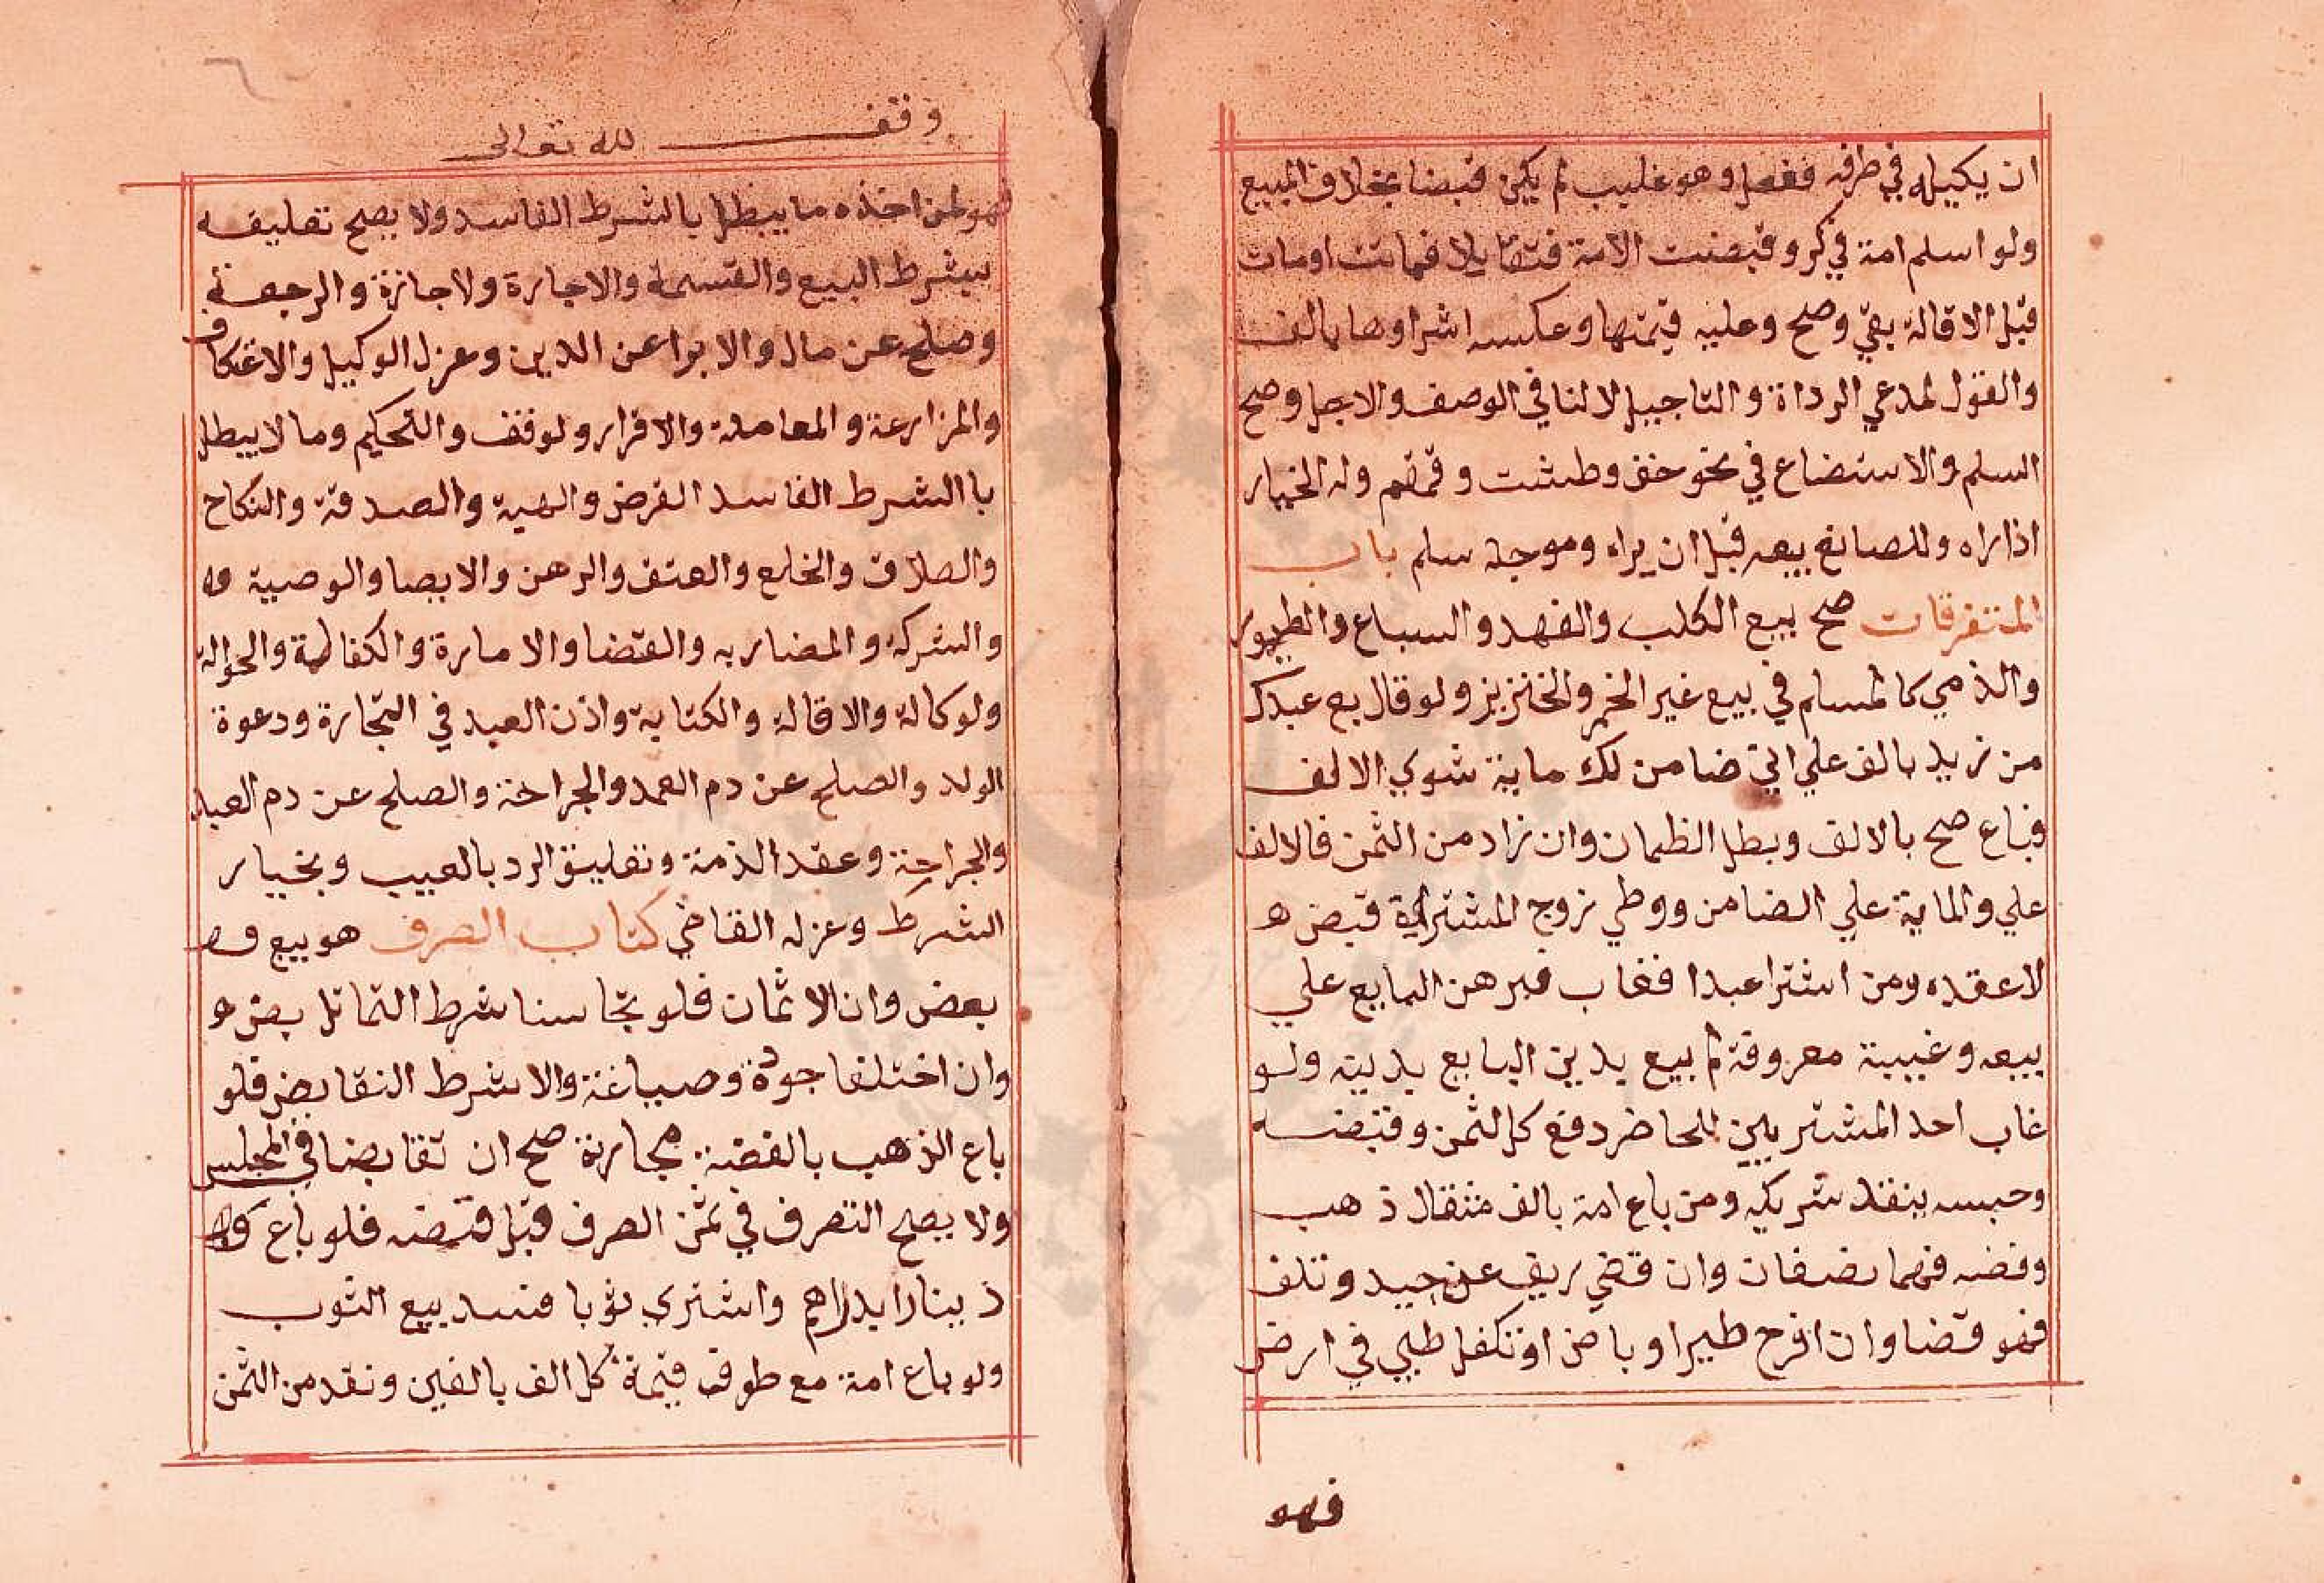 ان يكيله في طرفه ففعل وهو غليب لم يكن قبضا بخلاف المبيع
ولو اسلم امة في كر وقبضت الامة فتقايلا فماتت او مات
قبل الاقالة بقي وصح وعليه قيمتها وعكسه اشراوها بالف
والقول لمدعي الرداة والتاجيل لا لنا في الوصف والاجل وصح
السلم والاستضاع في نحو خف وطشت وقمقم وله الخيار
اذا راه وللصانع بيعه قبل ان يراه وموجله سلم باب
المتفرقات صح بيع الكلب والفهد والسباع والطيور
والذمي كالمسلم في بيع غير الخمر والخنزيز ولو قال بع عبدك
من زيد بالف علي اني ضامن لك ماية شوي الالف
فباع صح بالالف وبطل الظمان وان زاد من الثمن فالالف
علي والماية علي الضامن ووطي زوج المشتراية قبض
لا عقده ومن اشترا عبدا فغاب فبرهن البايع علي
بيعه وغيبية معروفة لم بيع بدين البايع بدينه ولو
غاب احد المشتريين للحاضر دفع كل الثمن وقبضه
وحبسه ينقد شريكه ومن باع امة بالف مثقال ذهب
وفضه فهما نصفان وان قضي ريف عن جيد وتلف
فهو قضا وان افرح طيرا وباض او تكفل طبي في ارض
فهو
وقف لله تعالى
فهو لمن اخذه ما يبطل بالشرط الفاسد ولا يصح تعليقه
بشرط البيع والقسمة والاجارة ولاجازة والرجعة
وصلح عن مال والابرا عن الدين وعزل الوكيل والاعتكاف
والمزارعة والمعاملة والاقرار ولوقف والتحكيم وما لا يبطل
باالشرط الفاسد القرض والهبة والصدقة والنكاح
والطلاق والخلع والعتق والرهن والايصا والوصية
والشركة والمضاربه والقضا والامارة والكفالة والحواله
ولوكالة والاقالة والكتابة واذن العبد في التجارة ودعوة
الولد والصلح عن دم العمد والجراحة والصلح عن دم العبد
والجراحة وعقد الذمة وتعليق الرد بالعيب وبخيار
الشرط وعزله القاضي كتاب الصرف هو بيع
بعض وان الاثمان فلو تجاسنا شرط التماثل
وان اختلفا جودة وصياغة والا شرط التقابض فلو
باع الذهب بالفضة مجازنة صح ان تقابضا في المجلس
ولا يصح التصرف في ثمن الصرف قبل قبضه فلو باع
دينارا بدراهم واشتري ثوبا فسد بيع الثوب
ولو باع امة مع طوق قيمة كل الف بالفين ونقد من الثمن